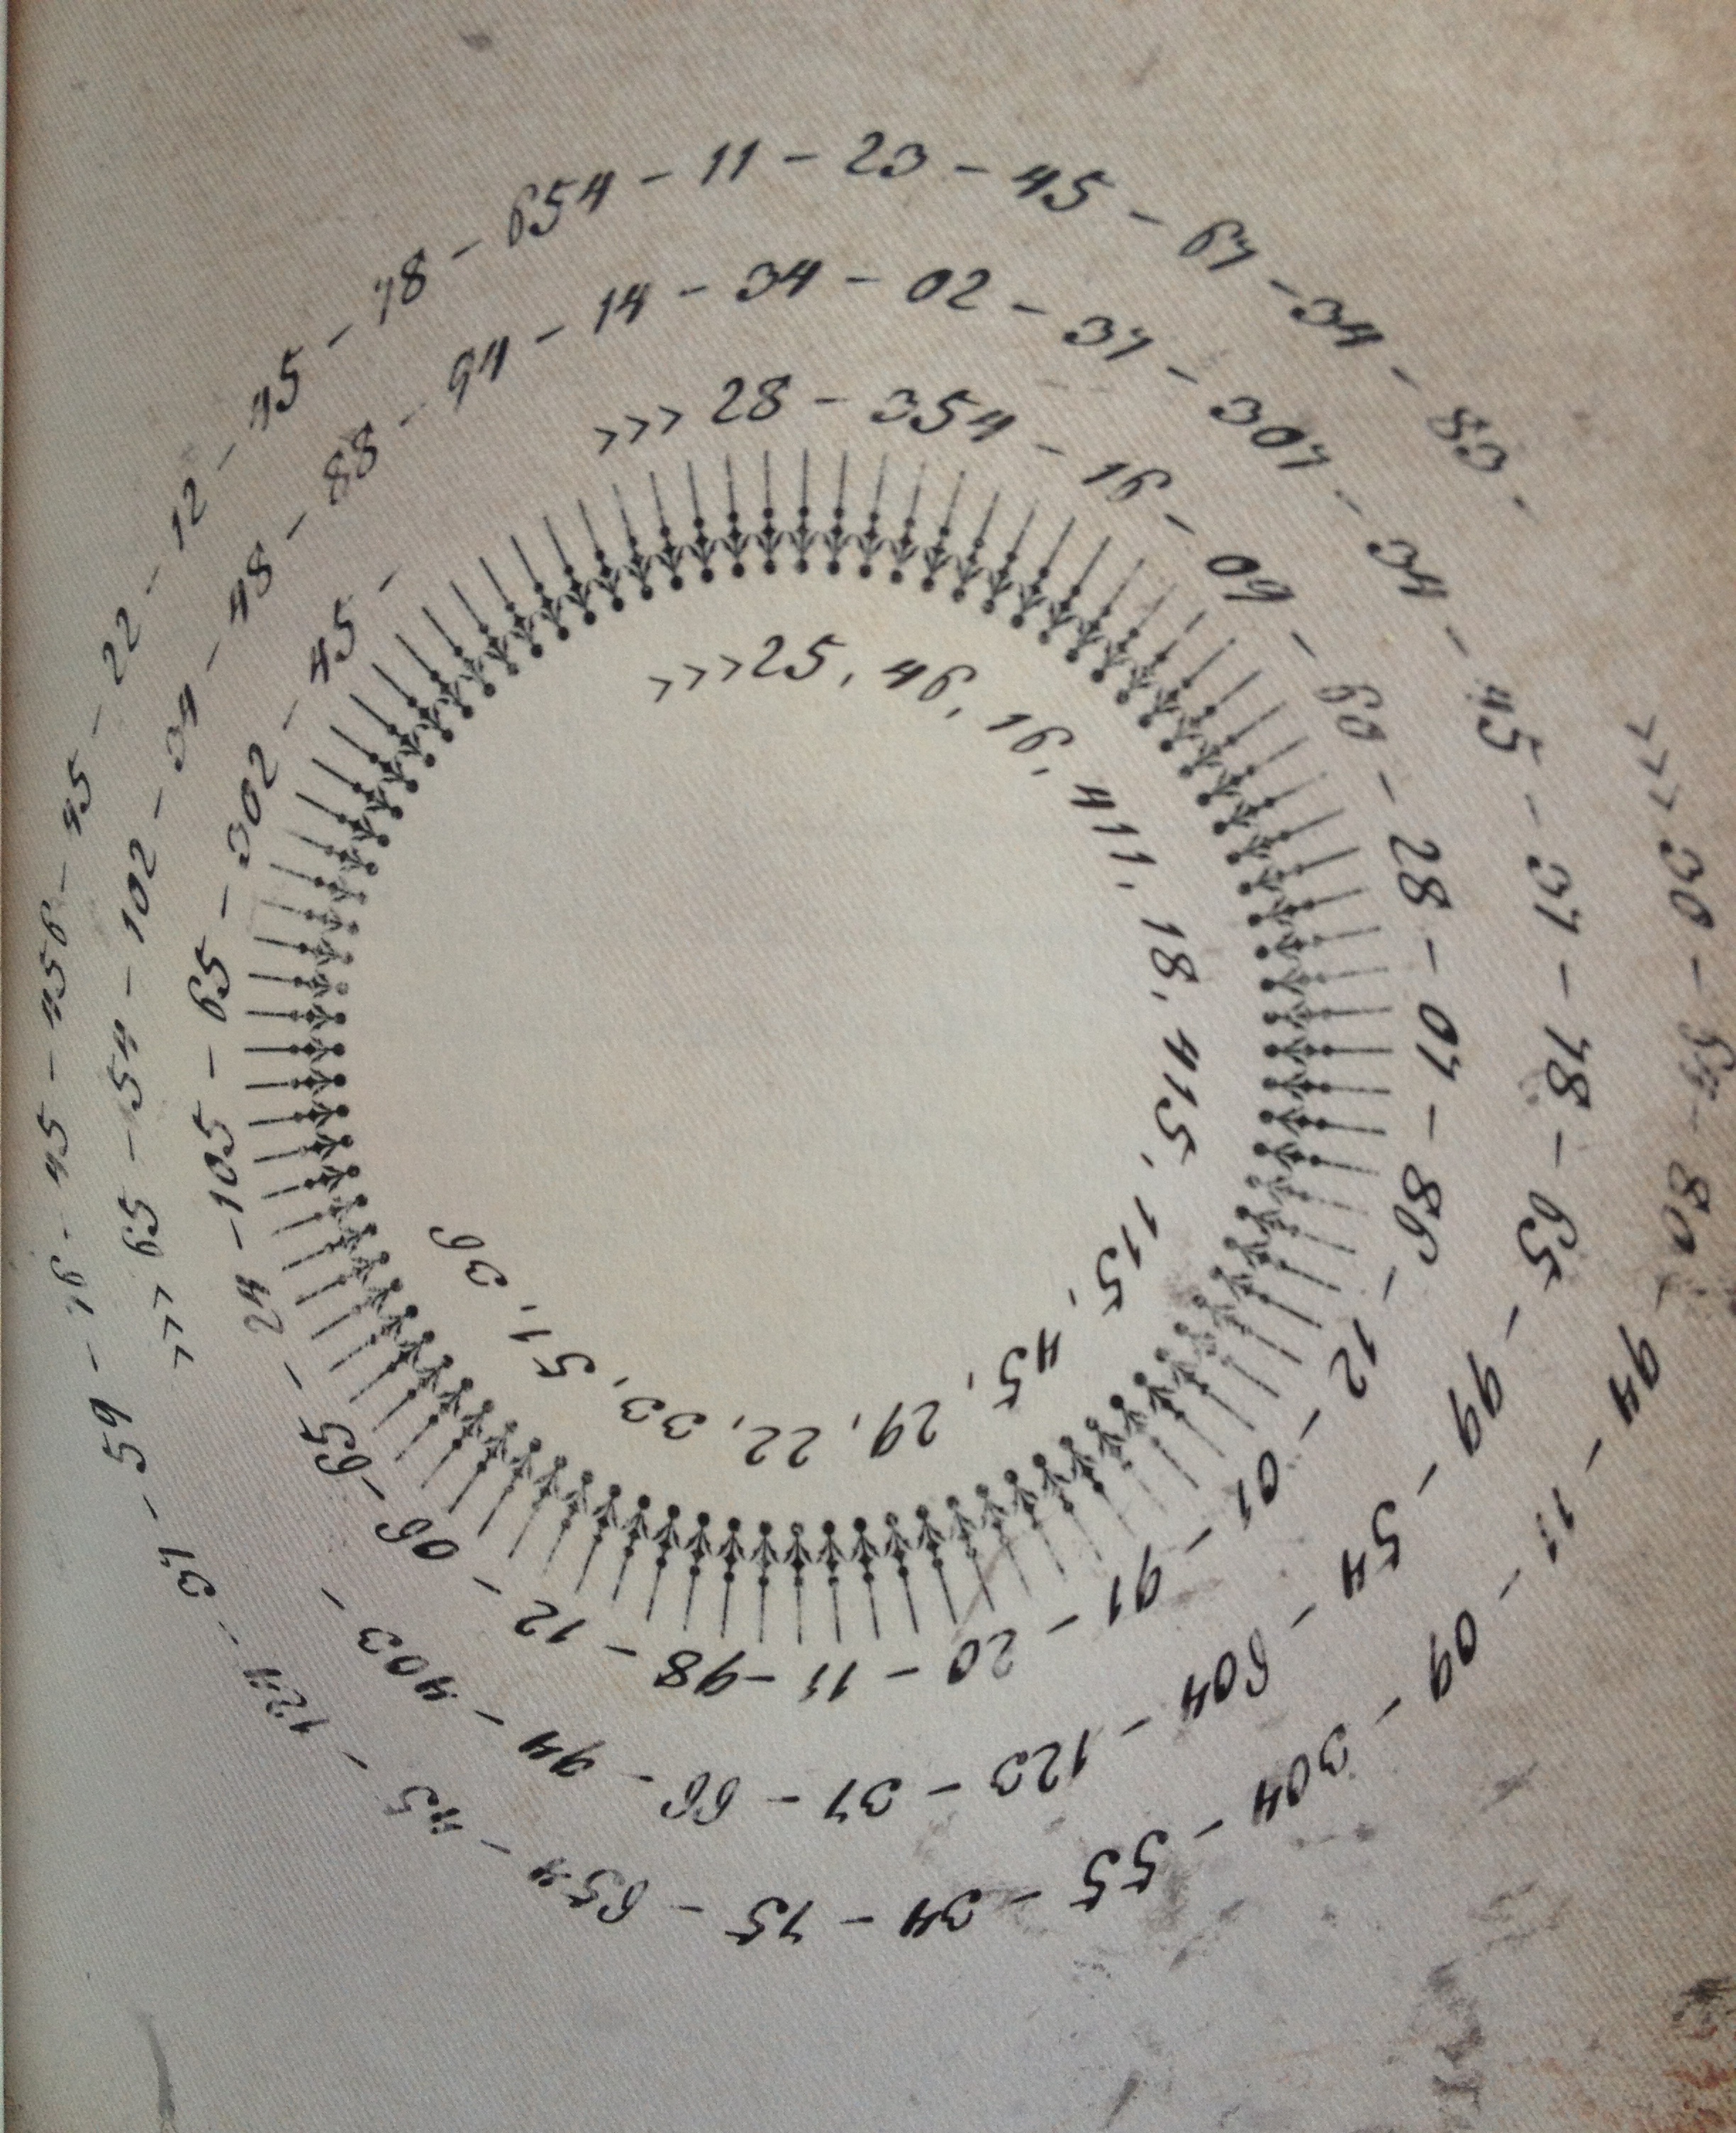 >>>25, 46, 16, 411, 18, 415, 115, 45, 29, 22, 33, 51, 36
>>> 28 - 354 - 16 - 09 - 60 - 28 - 07 - 86 - 12 - 01 - 91 - 20 - 11 - 98 - 12 - 06 - 65 - 24 - 105 - 65 - 302 - 45 -
>>> 65 - 54 - 102 - 34 - 48 - 88 - 94 - 14 - 34 - 02 - 37 - 307 - 34 - 45 - 37 - 78 - 65 - 99 - 54 - 604 - 123 - 37 - 66 - 94 - 403 -
>>> 30 - 54 - 80 - 94 - 11 - 09 - 304 - 55 - 34 - 75 - 654 - 45 - 124 - 37 - 59 - 16 - 45 - 456 - 45 - 22 - 12 - 45 - 78 - 654 - 11 - 23 - 45 - 67 - 34 - 83 -